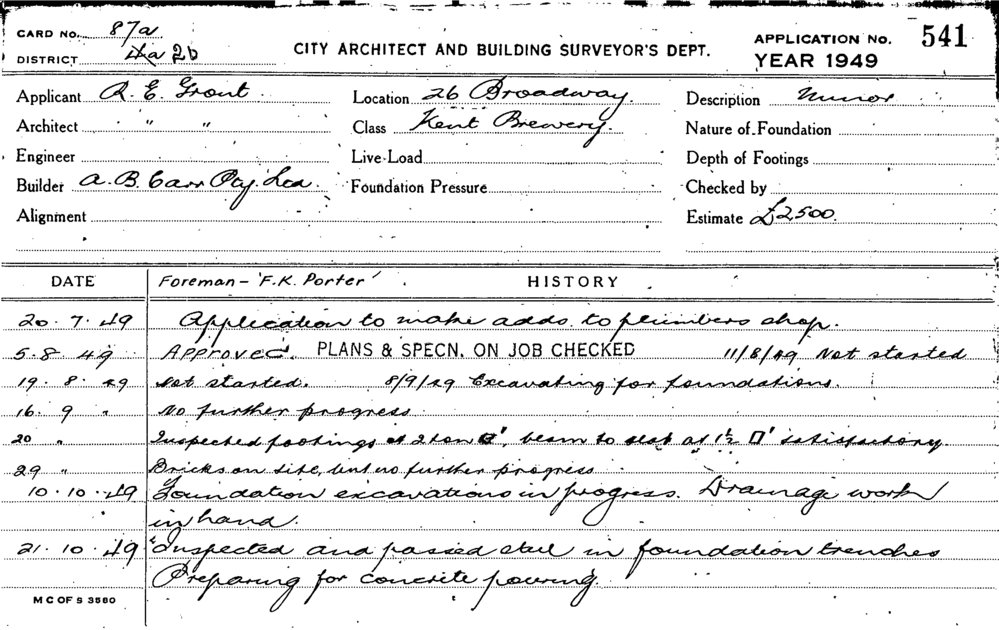 CARD NO. 87a
DISTRICT 4a 2b
CITY ARCHITECT AND BUILDING SURVEYOR'S DEPT.
APPLICATION NO. 541
YEAR 1949
Applicant R. E. Grout Location 26 Broadway. Description Minor
Architect " " Class Kent Brewery. Nature of Foundation
Engineer Live-Load Depth of Footings
Builder A. B. Carr Pty. Ltd. Foundation Pressure Checked by
Alignment Estimate £2500.
DATE Foreman - 'F.K. Porter' HISTORY
20 . 7 . 49 Application to make adds. to plumbers shop.
5 . 8 . 49 APPROVED. PLANS & SPECN. ON JOB CHECKED 11/8/49 Not started
19 . 8 . 49 Not started. 8/9/49 Excavating for foundations.
16 . 9 " No further progress
20 " Inspected footings at 2 ton □', beam to slab at 1½ □' satisfactory
29 " Bricks on site, but no further progress
10 . 10 . 49 Foundation excavations in progress. Drainage work
in hand.
21 . 10 . 49 Inspected and passed steel in foundation trenches
Preparing for concrete pouring.
M C OF S 3580